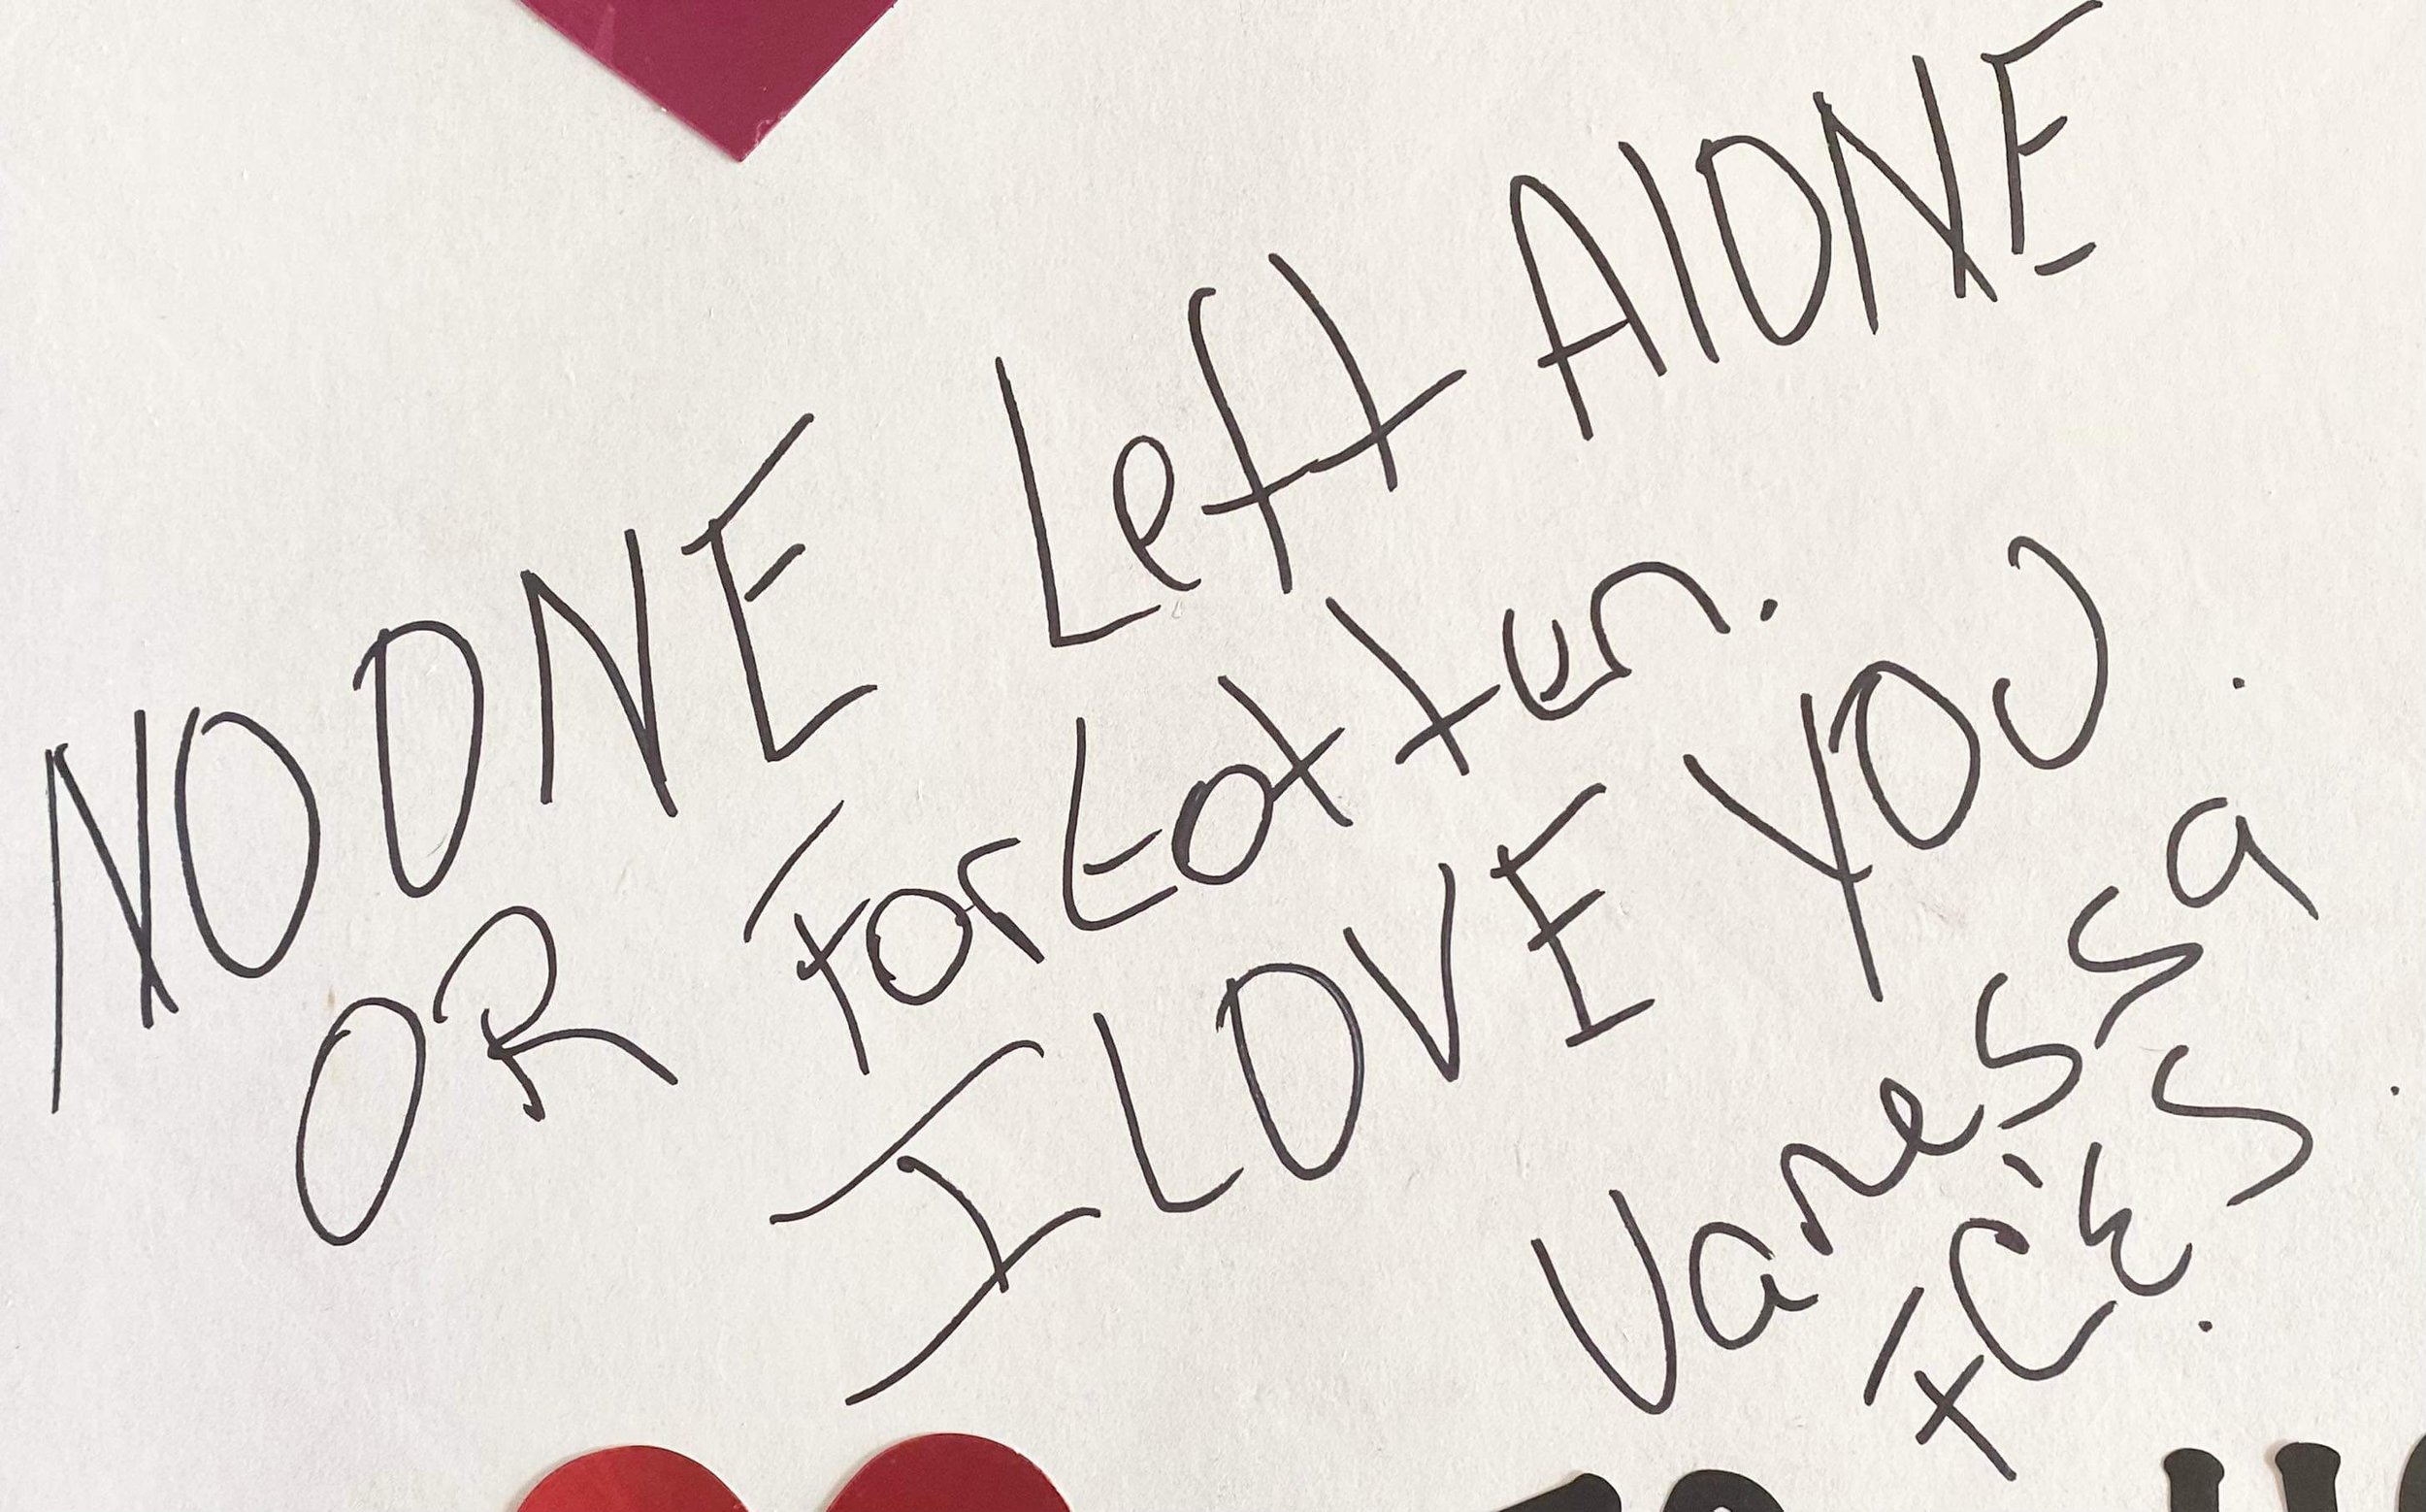 NO ONE Left AlONE
OR Forgotten.
I LOVE YOU.
Vanessa